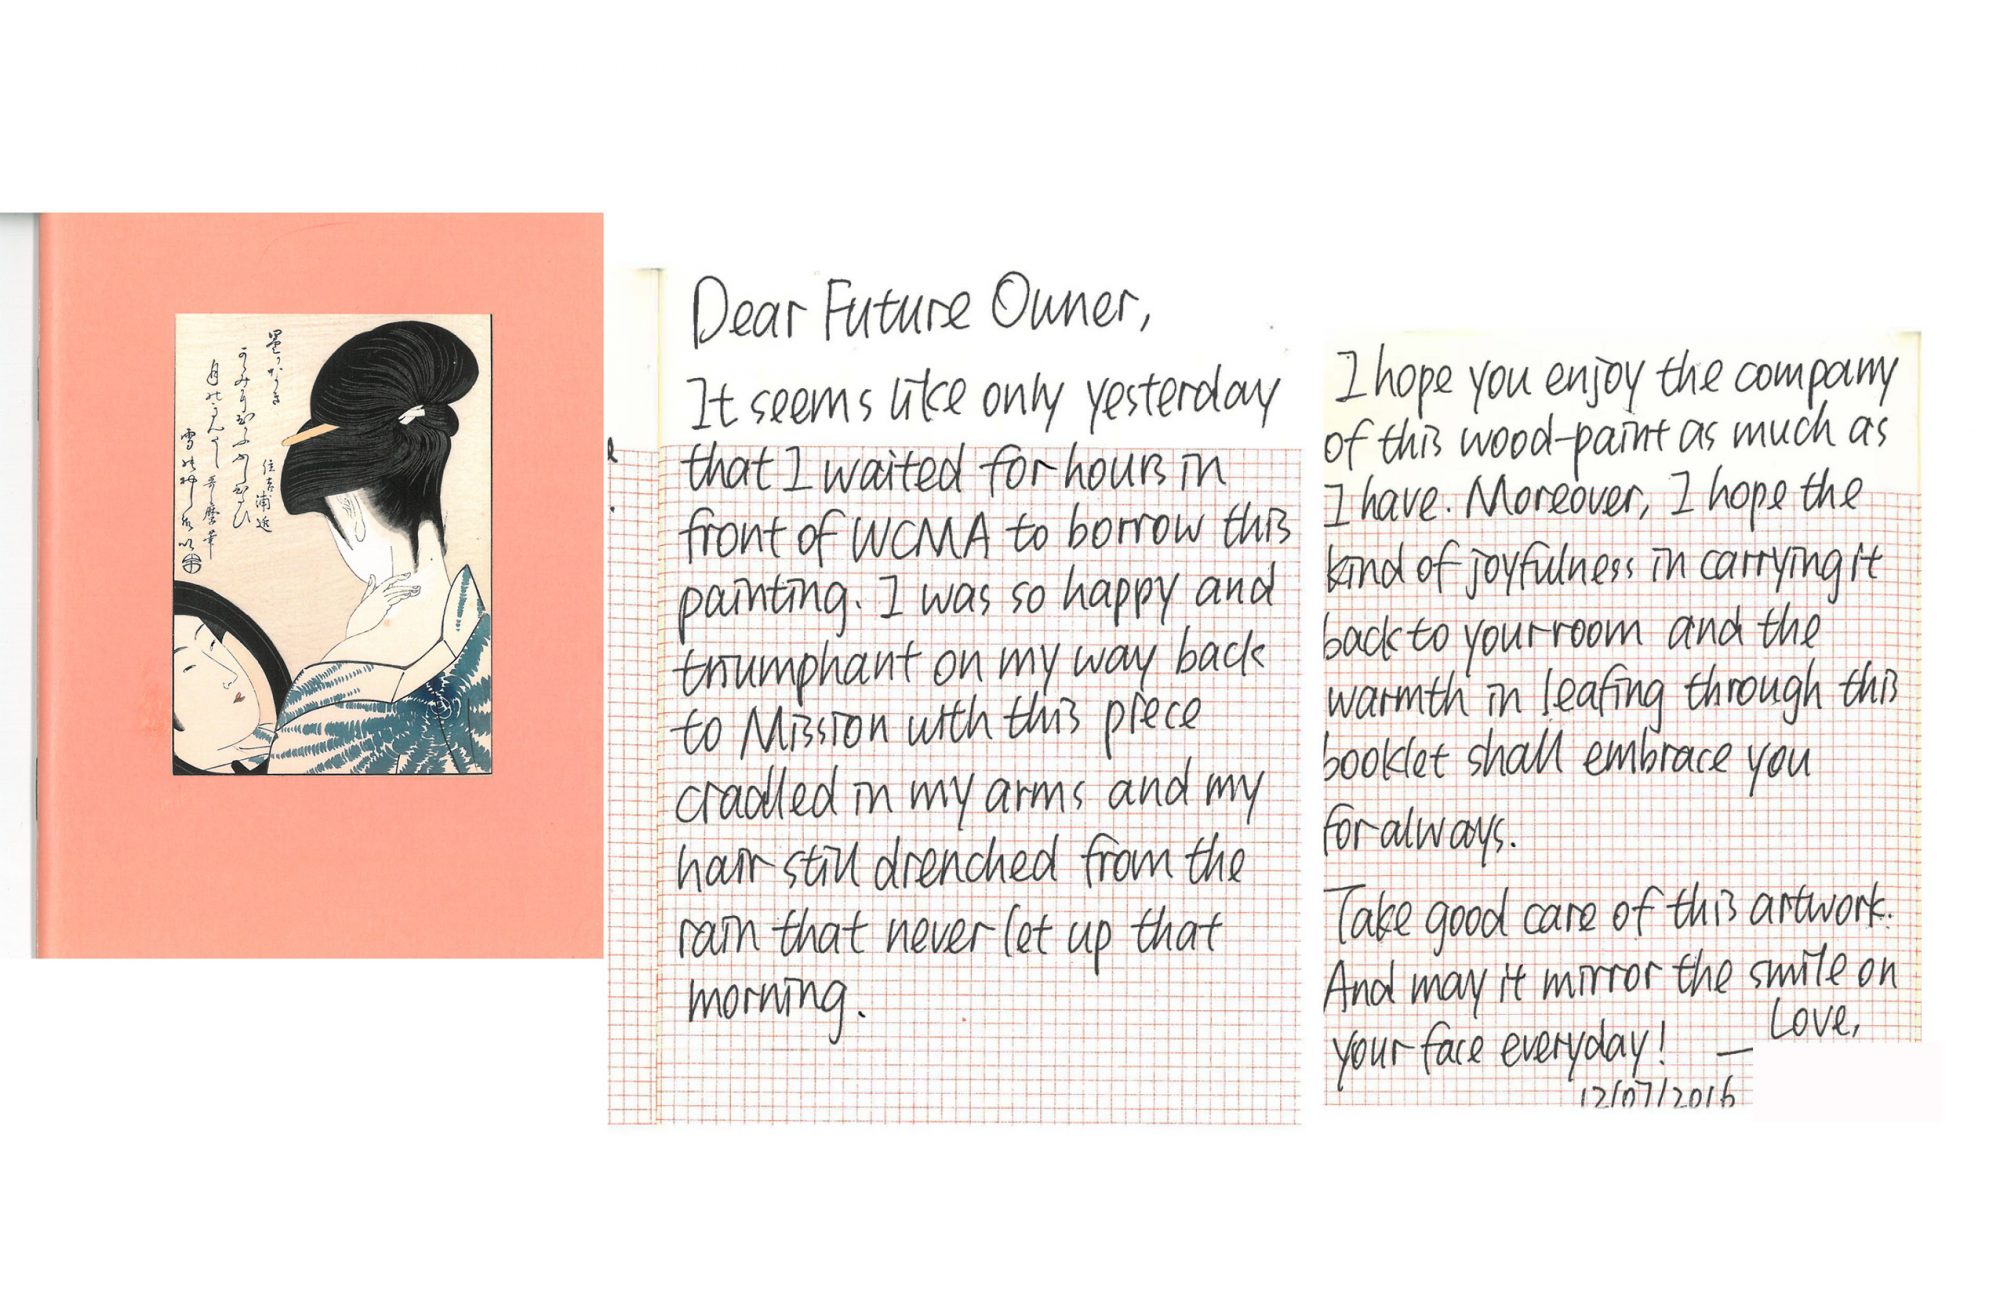 住吉浦近
月
雪
哥麿筆
Dear Future Owner,
It seems like only yesterday
that I waited for hours in
front of WCMA to borrow this
painting. I was so happy and
triumphant on my way back
to Mission with this piece
cradled in my arms and my
hair still drenched from the
rain that never let up that
morning.
I hope you enjoy the company
of this wood-paint as much as
I have. Moreover, I hope the
kind of joyfulness in carrying it
back to your room and the
warmth in leafing through this
booklet shall embrace you
for always.
Take good care of this artwork.
And may it mirror the smile on
your face everyday! — Love,
12/07/2016